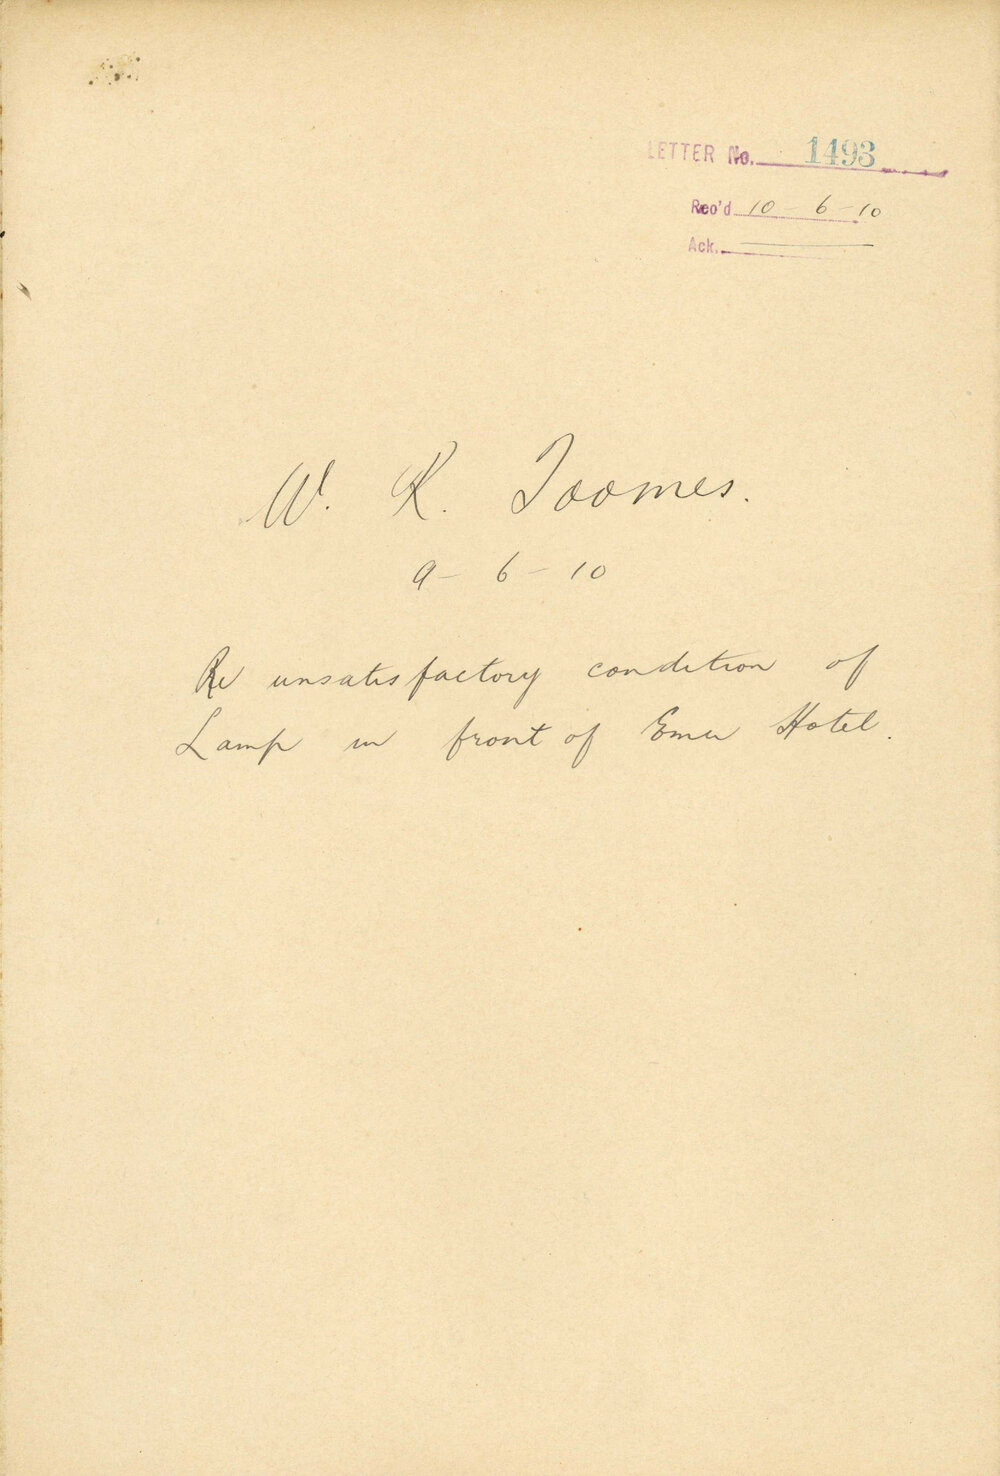 LETTER No. 1493
Rec'd 10-6-10
Ack.
W. K. Toomes.
9-6-10
Re unsatisfactory condition of
Lamp in front of Emu Hotel.